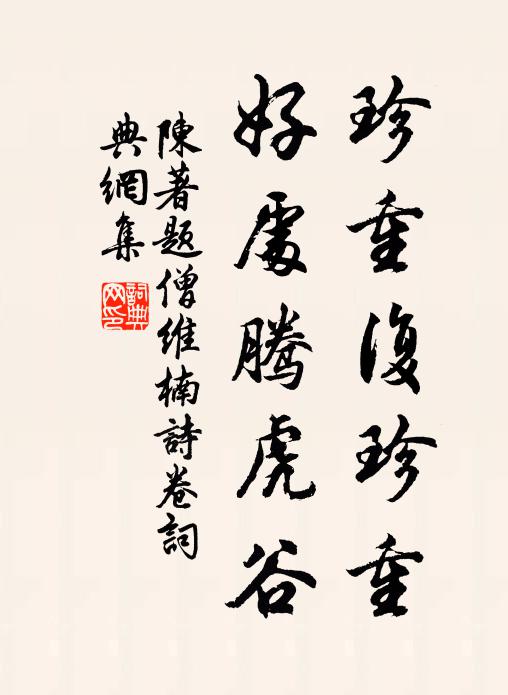 珍重復珍重
好處騰虎谷
陳著題僧維楠詩卷詞
典網集
詞典網印